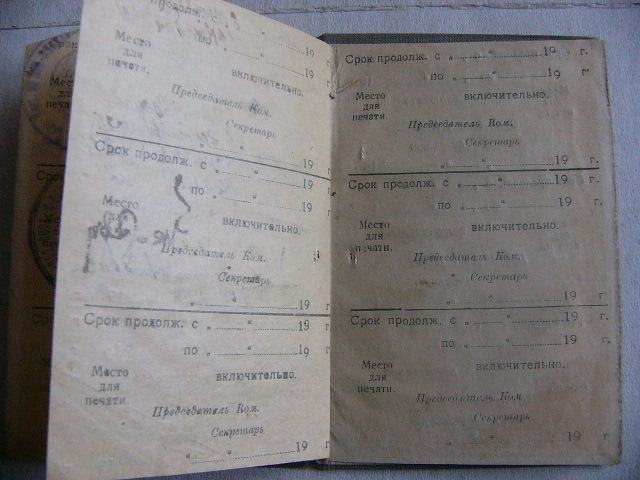 продолж.
по „ “ 19 г.
Место
для
печати.
включительно.
Председатель Ком.
Секретарь
„ “ 19
Срок продолж. с „ “ 19 г.
по „ “ 19
Место
для
включительно.
Председатель Ком.
Секретарь
„ “ 19 г.
Срок продолж. с „ “ 19 г.
по „ “ 19 г
Место
для
печати.
включительно.
Председатель Ком.
Секретарь
„ “ 19 г
Срок продолж. с „ “ 19 г.
по „ “ 19 г
Место
для
печати.
включительно.
Председатель Ком.
Секретарь
„ “ 19 г.
Срок продолж. с „ “ 19 г.
по „ “ 19 г.
Место
для
печати.
включительно.
Председатель Ком.
Секретарь
„ “ 19 г.
Срок продолж. с „ “ 19 г.
по „ “ 19 г.
Место
для
печати.
включительно.
Председатель Ком.
Секретарь
19 г